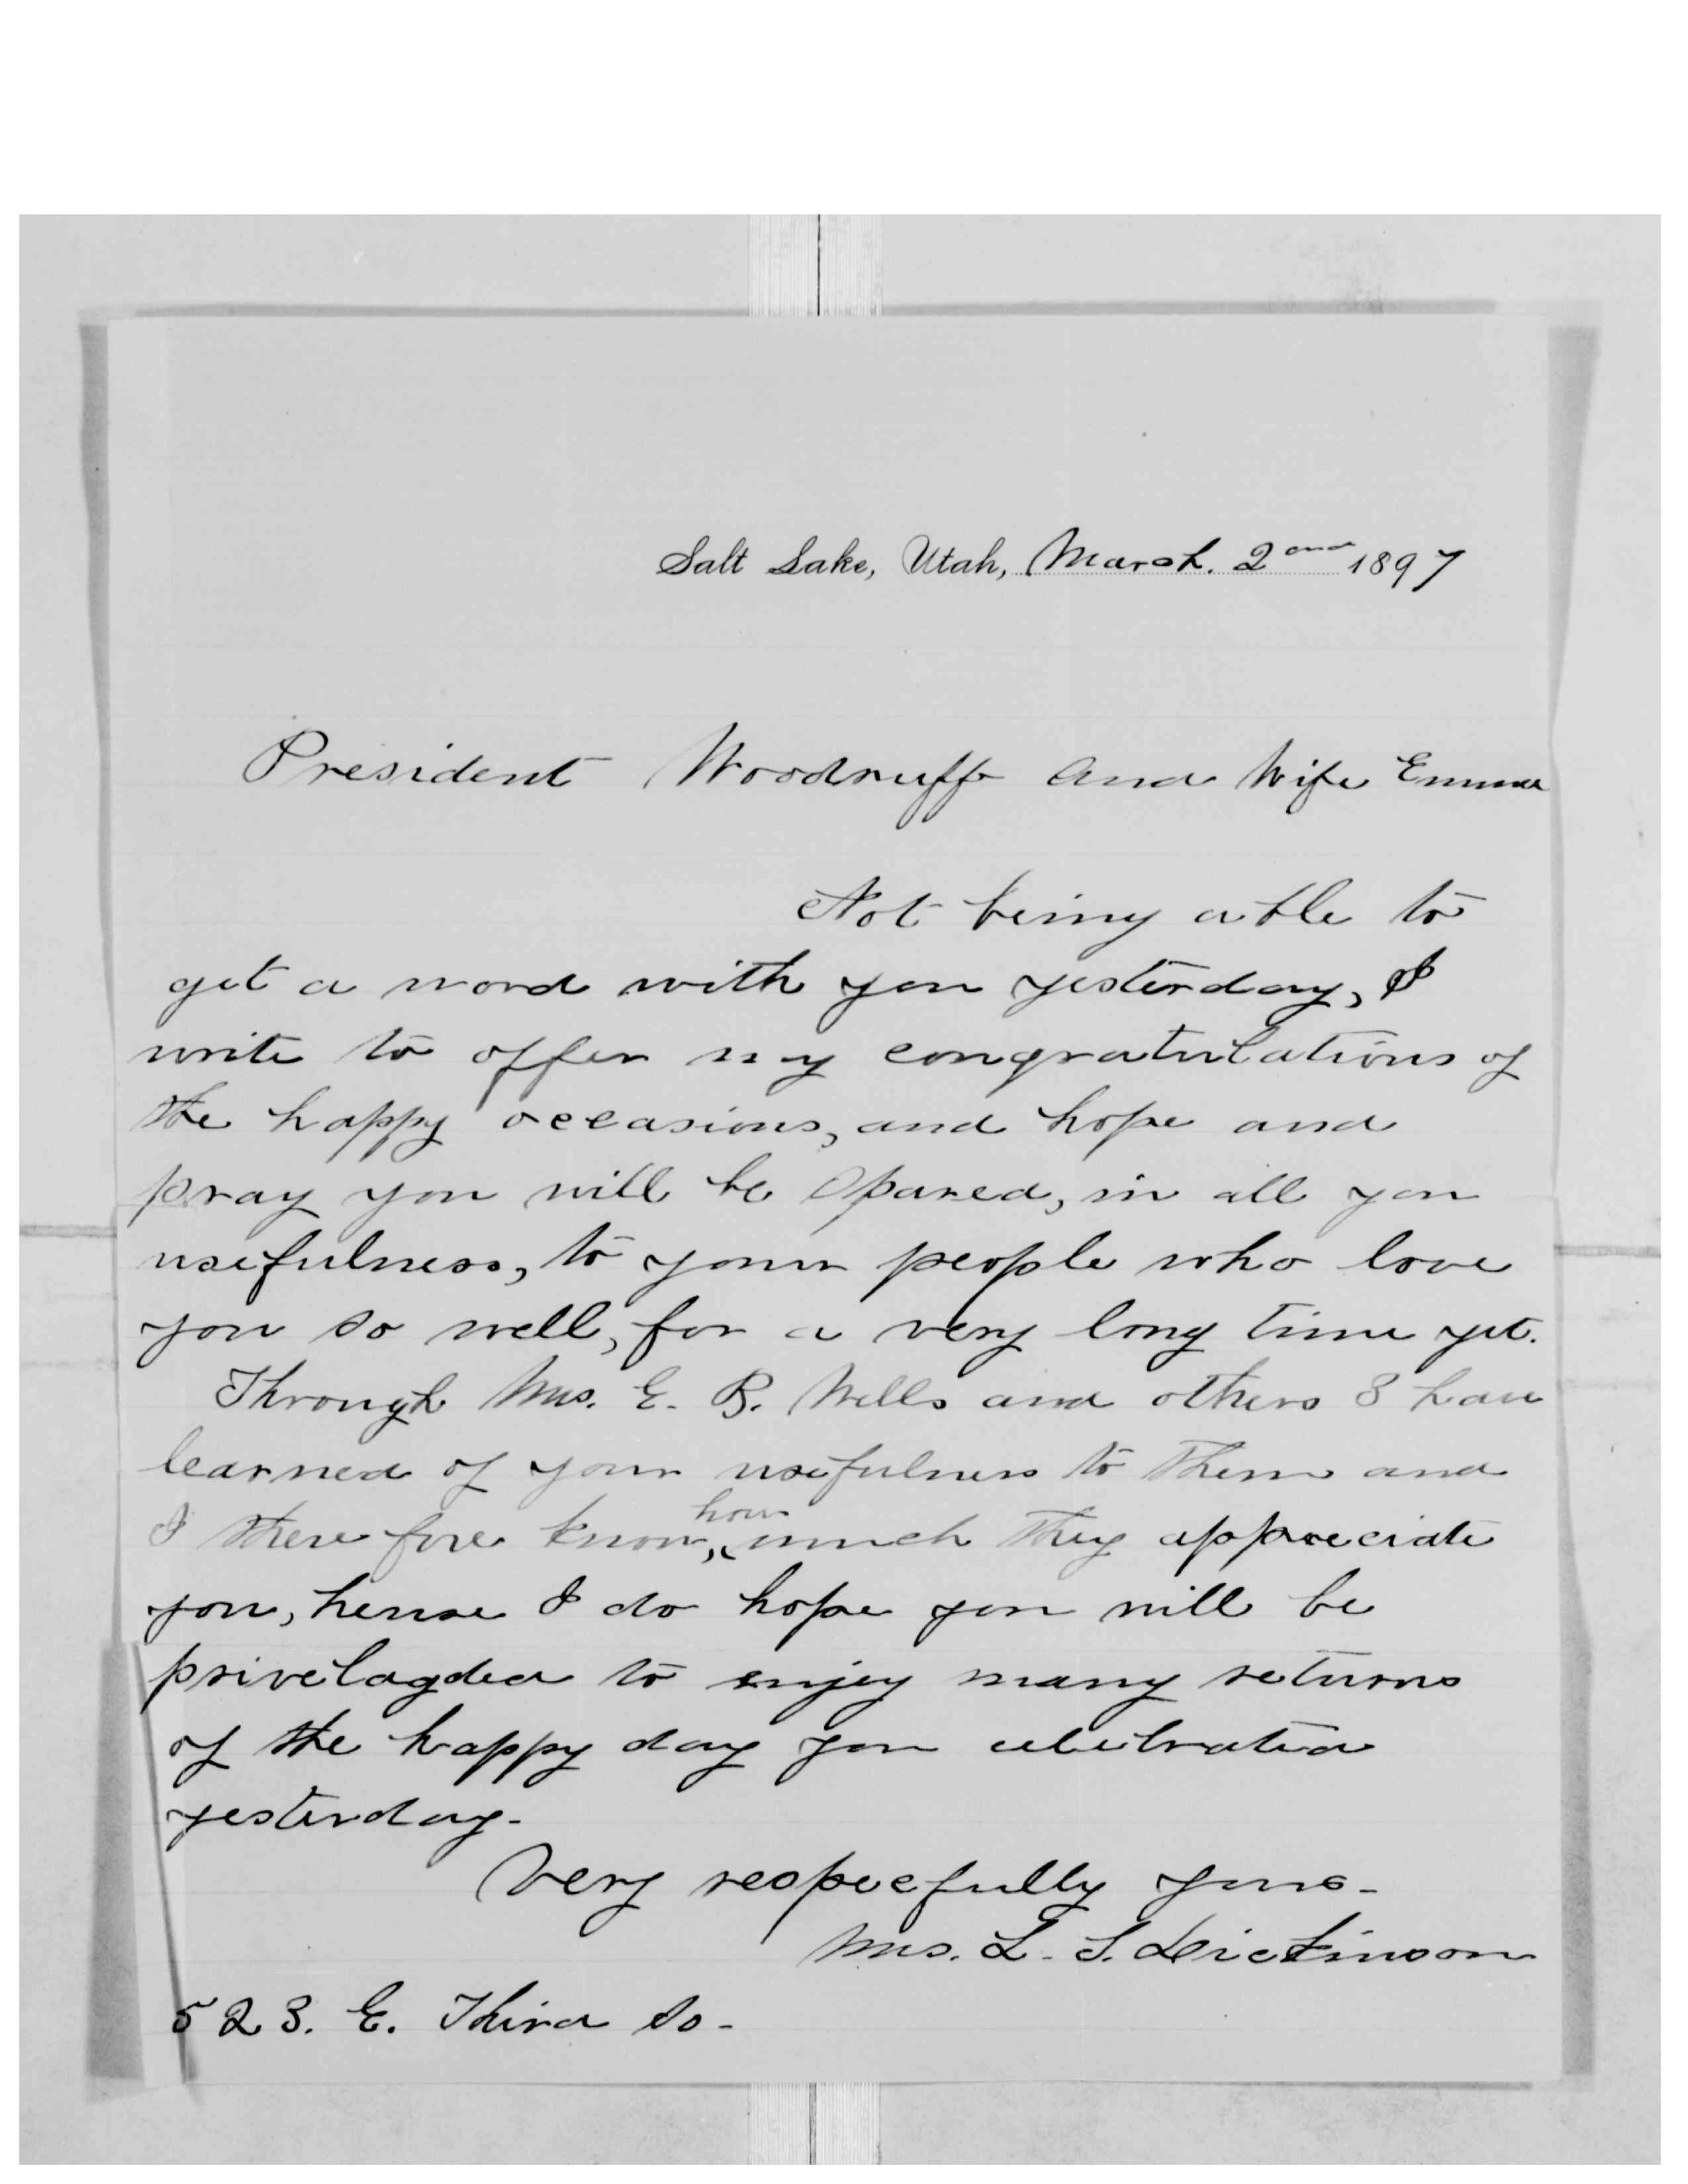 Salt Lake, Utah, March. 2ond 1897
President Woodruff and Wife Emma
Not being able to
get a word with you yesterday, I
write to offer my congratulations of
the happy occasions, and hope and
pray you will be spared, in all you
usefulness, to your people who love
you so well, for a very long time yet.
Through Mrs. E. B. Wells and others I have
learned of your usefulness to them and
I there fore know, how much they appreciate
you, hense I do hope you will be
privelagded to enjoy many returns
of the happy day you celebrated
yesterday.
Very respecfully yours-
Mrs. L. S. Dickinson
523. E. Third So-